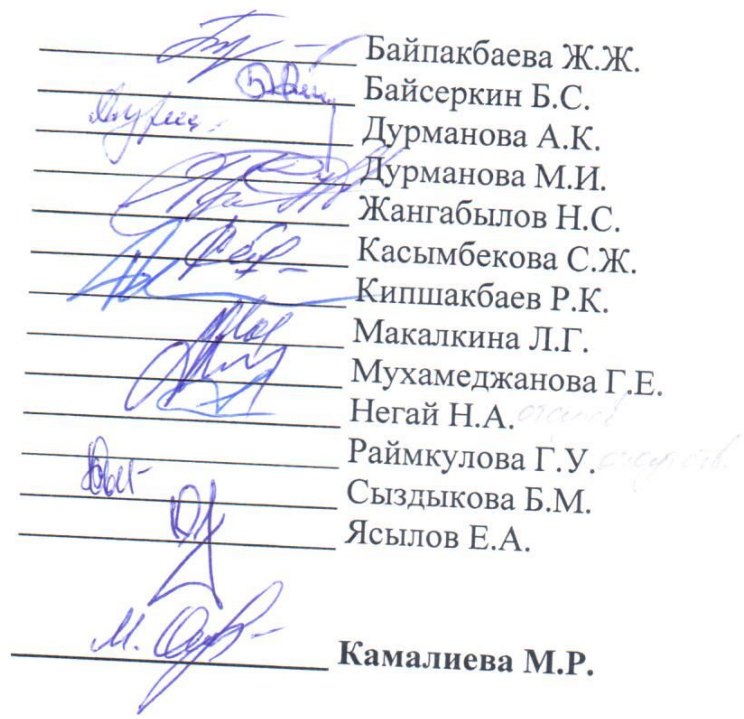 Байпакбаева Ж.Ж.
Байсеркин Б.С.
Дурманова А.К.
Дурманова М.И.
Жангабылов Н.С.
Касымбекова С.Ж.
Кипшакбаев Р.К.
Макалкина Л.Г.
Мухамеджанова Г.Е.
Негай Н.А.
Раймкулова Г.У.
Сыздыкова Б.М.
Ясылов Е.А.
Камалиева М.Р.